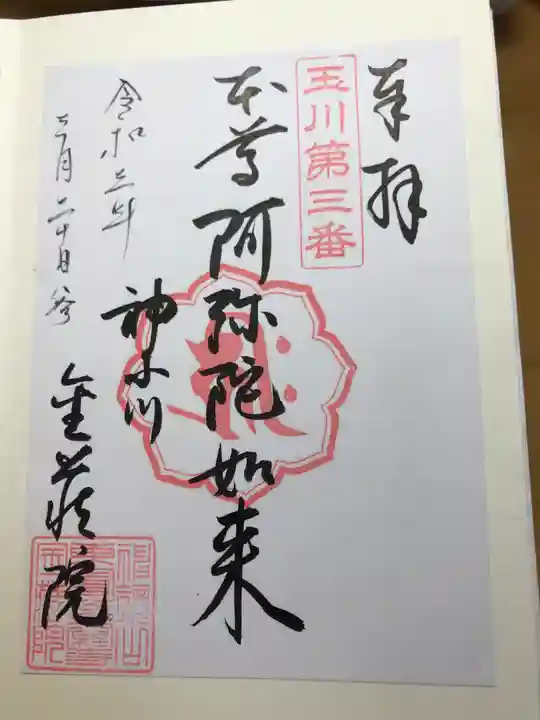 奉拝
玉川第三番
本尊阿弥陀如来
神木山
令和三年
三月二十日参
金蔵院